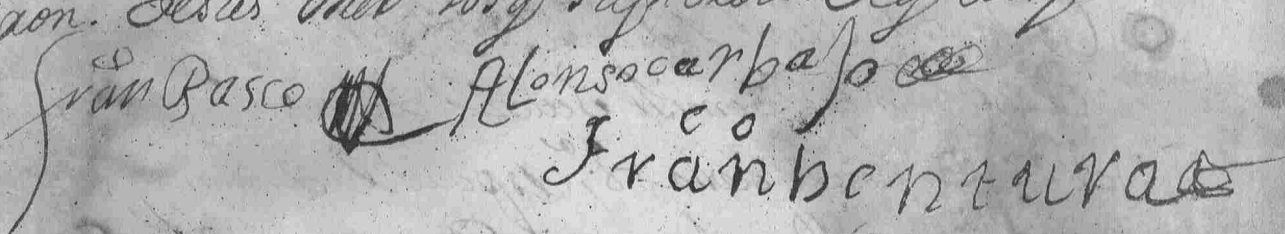 Fran^co Pasco Alonso carbajo
Fran^co bentura